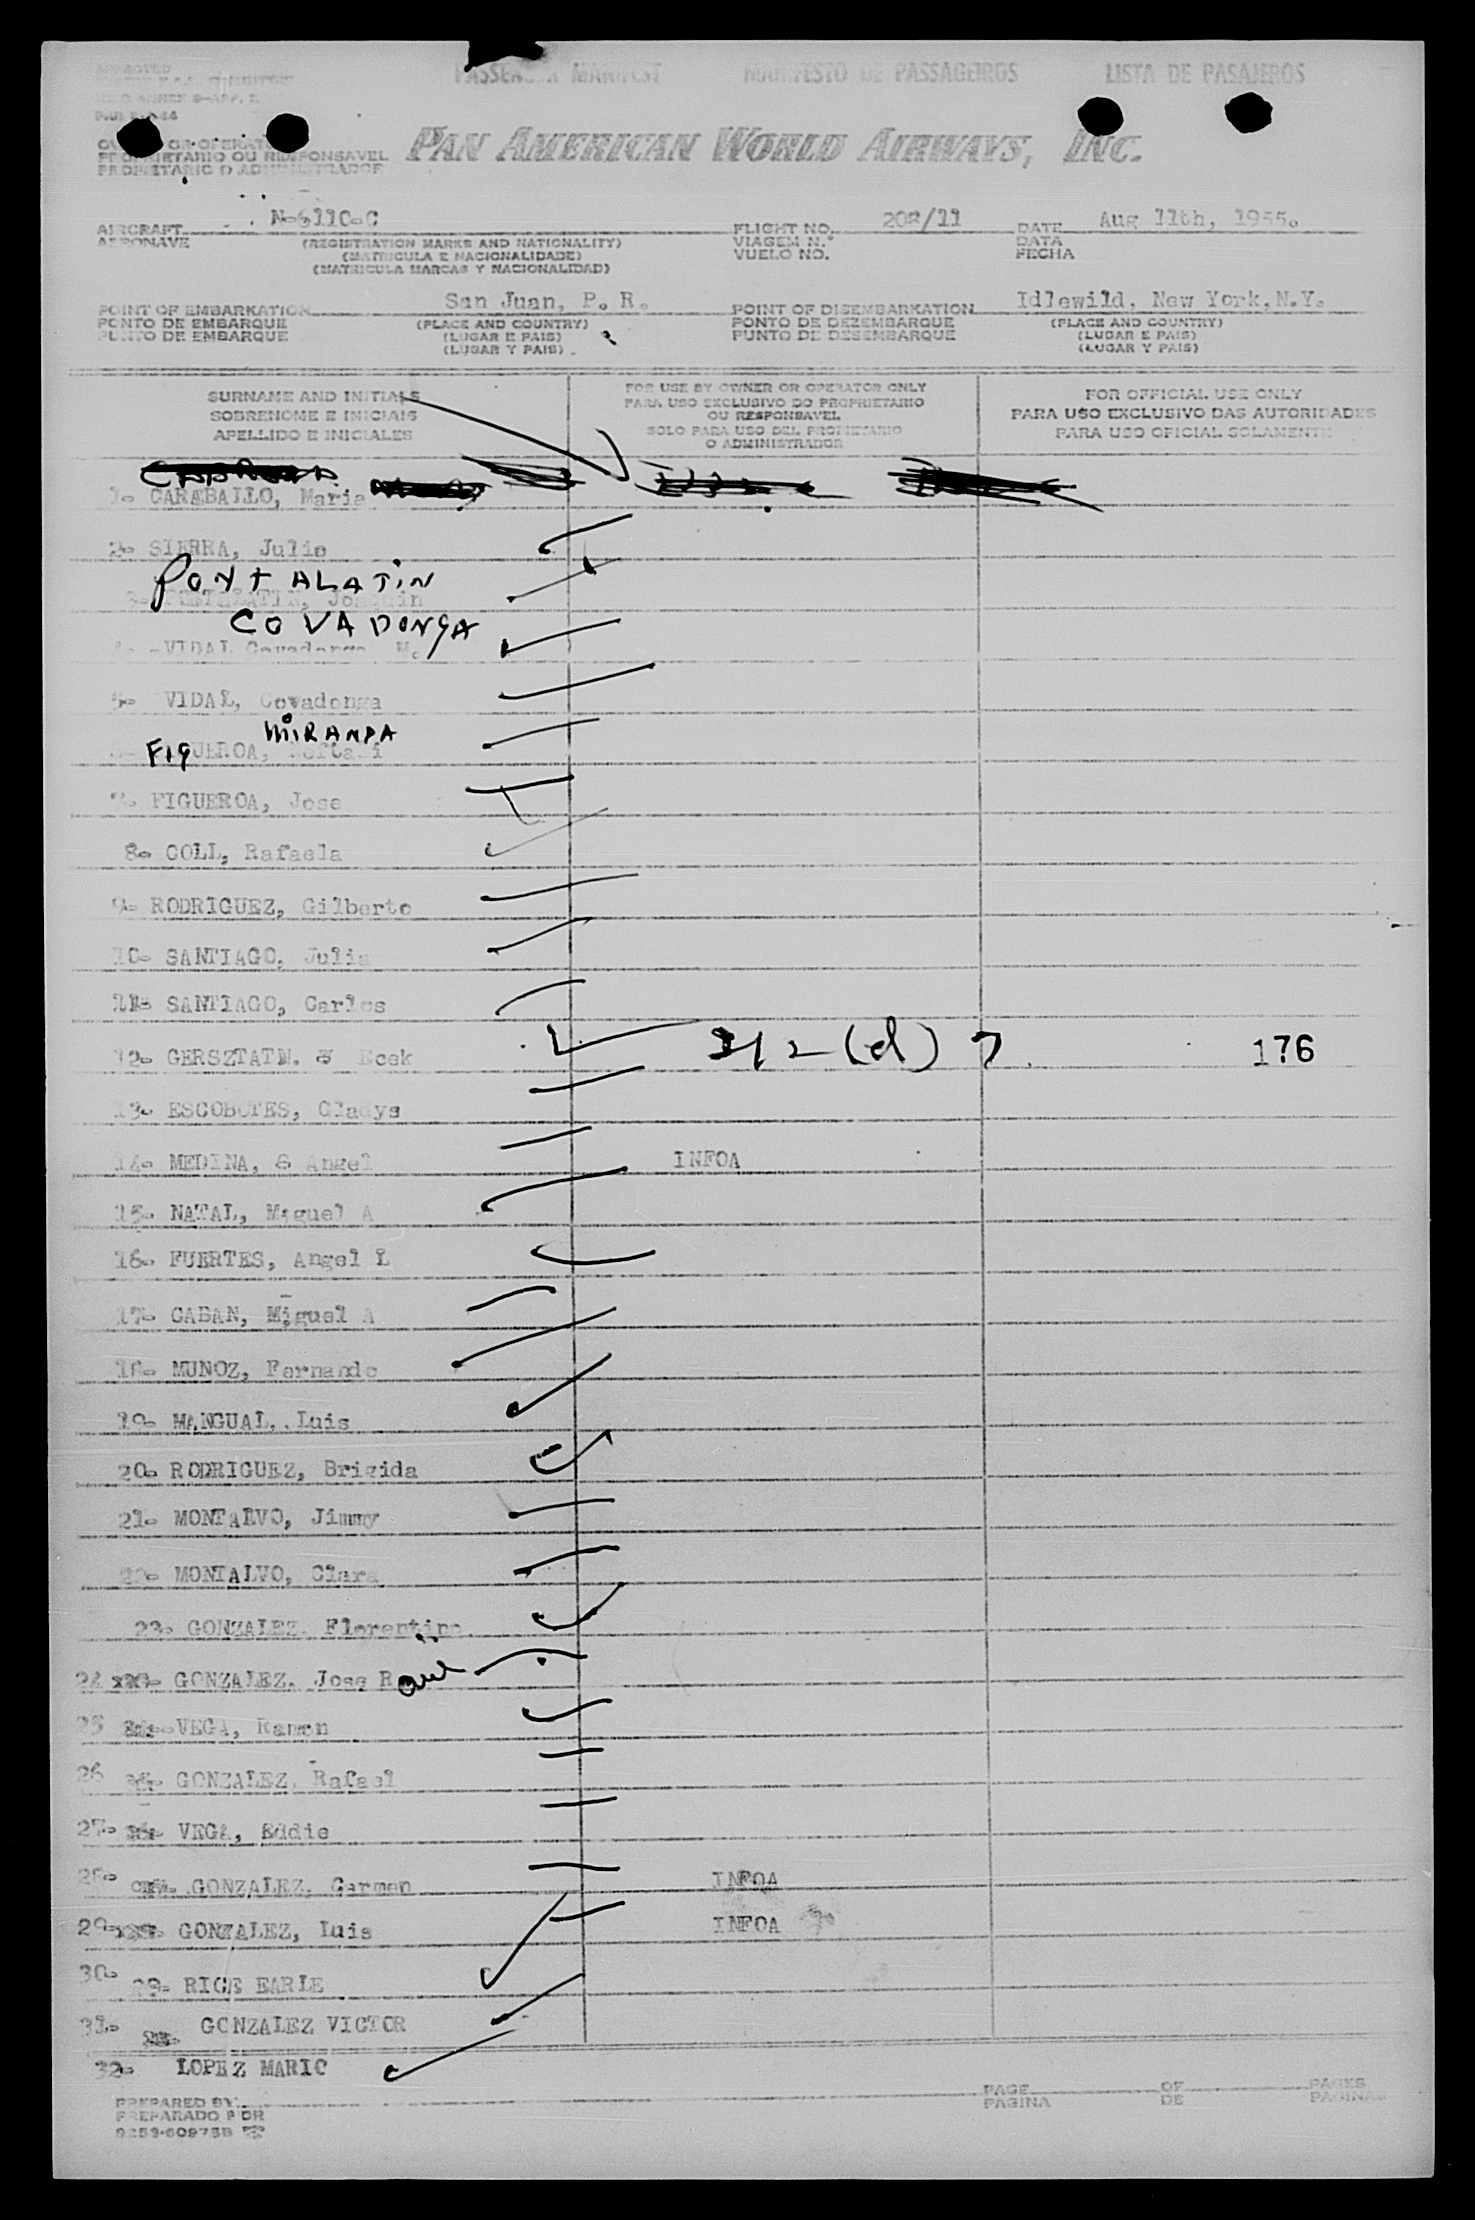 PASSENGER MANIFEST MANIFESTO DE PASSAGEIROS LISTA DE PASAJEROS
APPROVED
PAN AMERICAN WORLD AIRWAYS, INC.
PROPRIETARIO OU RESPONSAVEL
PROPIETARIO O ADMINISTRADOR
AIRCRAFT N-6110-C FLIGHT NO. 202/11 DATE Aug 11th, 1955.
AERONAVE (REGISTRATION MARKS AND NATIONALITY) VIAGEM N.° DATA
(MATRICULA E NACIONALIDADE) VUELO NO. FECHA
(MATRICULA MARCAS Y NACIONALIDAD)
POINT OF EMBARKATION San Juan, P. R. POINT OF DISEMBARKATION Idlewild, New York, N.Y.
PONTO DE EMBARQUE (PLACE AND COUNTRY) PONTO DE DEZEMBARQUE (PLACE AND COUNTRY)
PUNTO DE EMBARQUE (LUGAR E PAIS) PUNTO DE DESEMBARQUE (LUGAR E PAIS)
(LUGAR Y PAIS) (LUGAR Y PAIS)
SURNAME AND INITIALS FOR USE BY OWNER OR OPERATOR ONLY FOR OFFICIAL USE ONLY
SOBRENOME E INICIAIS PARA USO EXCLUSIVO DO PROPRIETARIO PARA USO EXCLUSIVO DAS AUTORIDADES
APELLIDO E INICIALES OU RESPONSAVEL PARA USO OFICIAL SOLAMENTE
SOLO PARA USO DEL PROPIETARIO
O ADMINISTRADOR
1- CARABALLO, Maria
2- SIERRA, Julio
PONTALATIN
3-
COVADONGA
4- VIDAL Covadonga M.
5- VIDAL, Covadonga
MIRANDA
6- FIGUEROA, Neftali
7- FIGUEROA, Jose
8- COLL, Rafaela
9- RODRIGUEZ, Gilberto
10- SANTIAGO, Julia
11- SANTIAGO, Carlos
12- GERSZTATN. 212 (d) 7 176
13- ESCOBOTES, Gladys
14- MEDINA, Angel INFOA
15- NATAL, Miguel A
16- FUERTES, Angel L
17- CABAN, Miguel A
18- MUNOZ, Fernando
19- MANGUAL, Luis
20- RODRIGUEZ, Brigida
21- MONTALVO, Jimmy
22- MONTALVO, Clara
23- GONZALEZ. Florentino.
24 GONZALEZ. Jose Raul
25 VEGA, Ramon
26 GONZALEZ. Rafael
27- VEGA, Eddie
28- GONZALEZ. Carmen INFOA
29- GONZALEZ, Luis INFOA
30- 29- RICE EARLE
31- GONZALEZ VICTOR
32- LOPEZ MARIO
PREPARED BY PAGE OF PAGES
PREPARADO POR PAGINA DE PAGINAS